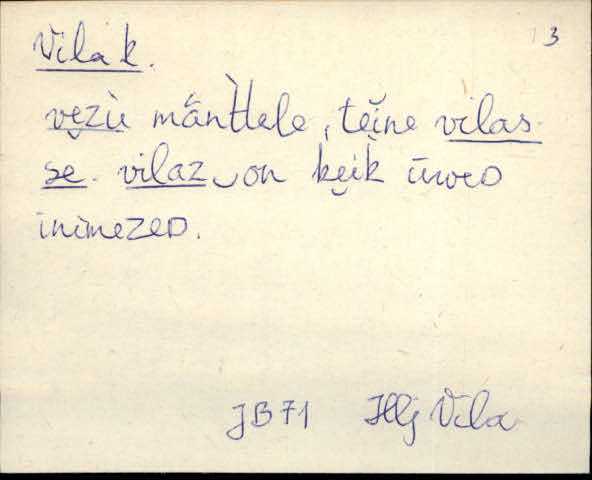 3
Vila k.
vęzìe mǟnttele, tęine vilas-
se. vilaz‿on kęik üved
inimezed.
JB 71 Hlj Vila